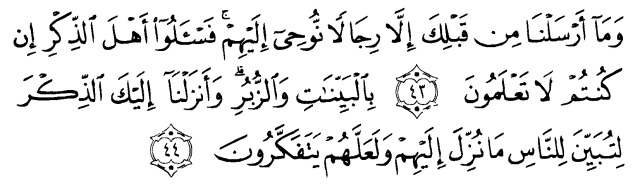 وَمَآ أَرْسَلْنَا مِن قَبْلِكَ إِلَّا رِجَالًا نُّوحِىٓ إِلَيْهِمْ ۚ فَسْـَٔلُوٓا۟ أَهْلَ ٱلذِّكْرِ إِن
كُنتُمْ لَا تَعْلَمُونَ ٤٣ بِٱلْبَيِّنَـٰتِ وَٱلزُّبُرِ ۗ وَأَنزَلْنَآ إِلَيْكَ ٱلذِّكْرَ
لِتُبَيِّنَ لِلنَّاسِ مَا نُزِّلَ إِلَيْهِمْ وَلَعَلَّهُمْ يَتَفَكَّرُونَ ٤٤